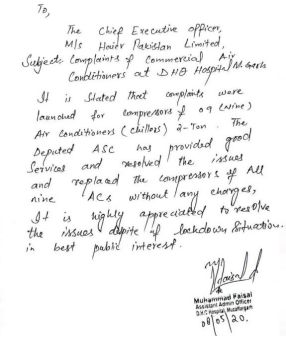 To,
The Chief Executive officer,
M/s Haier Pakistan Limited,
Subject: Complaints of Commercial Air
Conditioners at DHQ Hospital M.Garh
It is stated that complaints were
launched for compressors of 09 (Nine)
Air Conditioners (chillers) 2-Ton. The
Deputed ASC has provided good
Services and resolved the issues
and replaced the compressors of All
nine ACs without any charges,
It is highly appreciated to resolve
the issues despite of lockdown situation.
in best public interest.
Muhammad Faisal
Assistant Admin Officer
D.H.Q Hospital, Muzaffargarh
08/05/20.